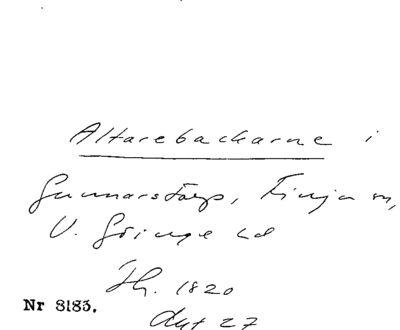 Altarebackarne i
Gunnarstorp, Finja sn,
V. Göinge hd
Th. 1820
Nr 8183.
Akt 27